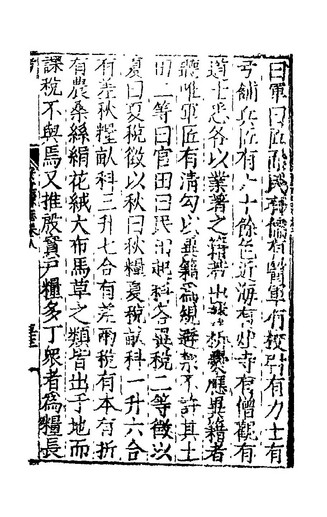 曰軍曰匠曰民有儒有醫軍有校尉有力士有
弓鋪兵匠有八十餘色近海有鹽寺有僧觀有
道士悉各以業著之籍諸出
唯軍匠有清勾以籍為規避禁不許其土
田二等曰官田曰民田科各異稅二等徵以
夏曰夏稅徵以秋曰秋糧夏稅畝科一升六合
有差秋糧畝科三升七合有差兩稅有本有折
有農桑絲絹花絨大布馬草之類皆出于地而
課稅不與焉又推殷實戶糧多丁眾者為糧長